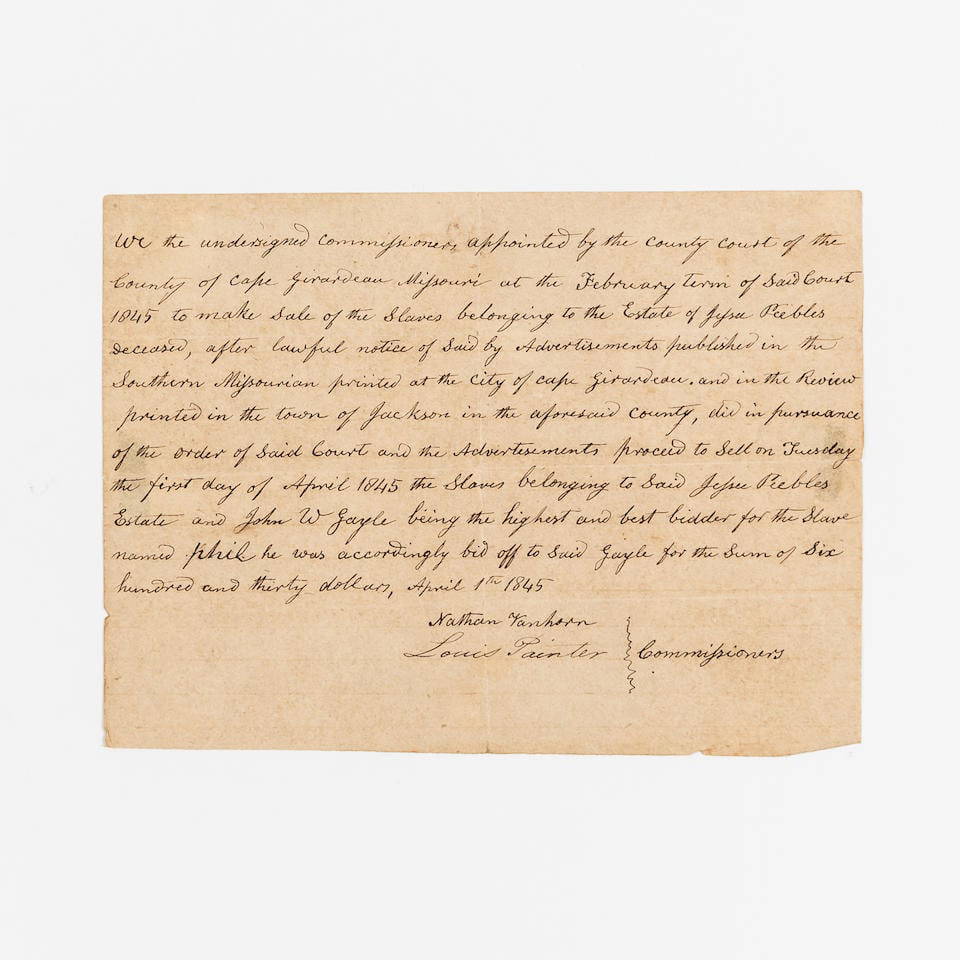 We the undersigned commissioners, appointed by the county court of the
County of Cape Girardeau Missouri at the February term of Said Court
1845 to make Sale of the Slaves belonging to the Estate of Jesse Peebles
deceased, after lawful notice of Said by Advertisements published in the
Southern Missourian printed at the City of Cape Girardeau. and in the Review
printed in the town of Jackson in the aforesaid county, did in pursuance
of the order of Said Court and the Advertisements proceed to Sell on Tuesday
the first day of April 1845 the Slaves belonging to Said Jesse Peebles
Estate and John W Gayle being the highest and best bidder for the Slave
named phil he was accordingly bid off to Said Gayle for the Sum of Six
hundred and thirty dollars, April 1th 1845
Nathan Vanhorn
Louis Painter Commissioners